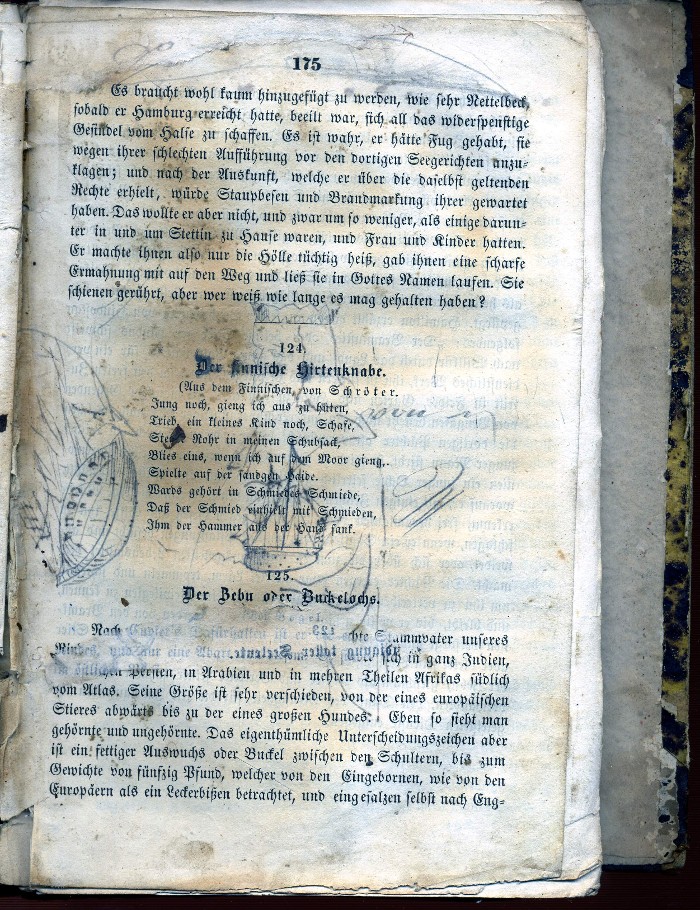 175
Es braucht wohl kaum hinzugefügt zu werden, wie sehr Nettelbeck,
sobald er Hamburg erreicht hatte, beeilt war, sich all das widerspenstige
Gesindel vom Halse zu schaffen. Es ist wahr, er hätte Fug gehabt, sie
wegen ihrer schlechten Aufführung vor den dortigen Seegerichten anzu-
klagen; und nach der Auskunft, welche er über die daselbst geltenden
Rechte erhielt, würde Staupbesen und Brandmarkung ihrer gewartet
haben. Das wollte er aber nicht, und zwar um so weniger, als einige darun-
ter in und um Stettin zu Hause waren, und Frau und Kinder hatten.
Er machte ihnen also nur die Hölle tüchtig heiß, gab ihnen eine scharfe
Ermahnung mit auf den Weg und ließ sie in Gottes Namen laufen. Sie
schienen gerührt, aber wer weiß wie lange es mag gehalten haben?
124.
Der finnische Hirtenknabe.
(Aus dem Finnischen, von Schröter.
Jung noch, gieng ich aus zu hüten,
Trieb, ein kleines Kind noch, Schafe,
Rohr in meinen Schubsack,
Blies eins, wenn ich auf dem Moor gieng,
Spielte auf der sandgen Haide.
Wards gehört in Schmiedes Schmiede,
Daß der Schmied einhielt mit Schmieden,
Ihm der Hammer aus der Hand sank.
125.
Der Zebu oder Buckelochs.
Nach ist er der echte Stammvater unseres
Rindes, und nur eine in ganz Indien,
im östlichen Persien, in Arabien und in mehren Theilen Afrikas südlich
vom Atlas. Seine Größe ist sehr verschieden, von der eines europäischen
Stieres abwärts bis zu der eines großen Hundes. Eben so sieht man
gehörnte und ungehörnte. Das eigenthümliche Unterscheidungszeichen aber
ist ein fettiger Auswuchs oder Buckel zwischen den Schultern, bis zum
Gewichte von fünfzig Pfund, welcher von den Eingebornen, wie von den
Europäern als ein Leckerbißen betrachtet, und eingesalzen selbst nach Eng-